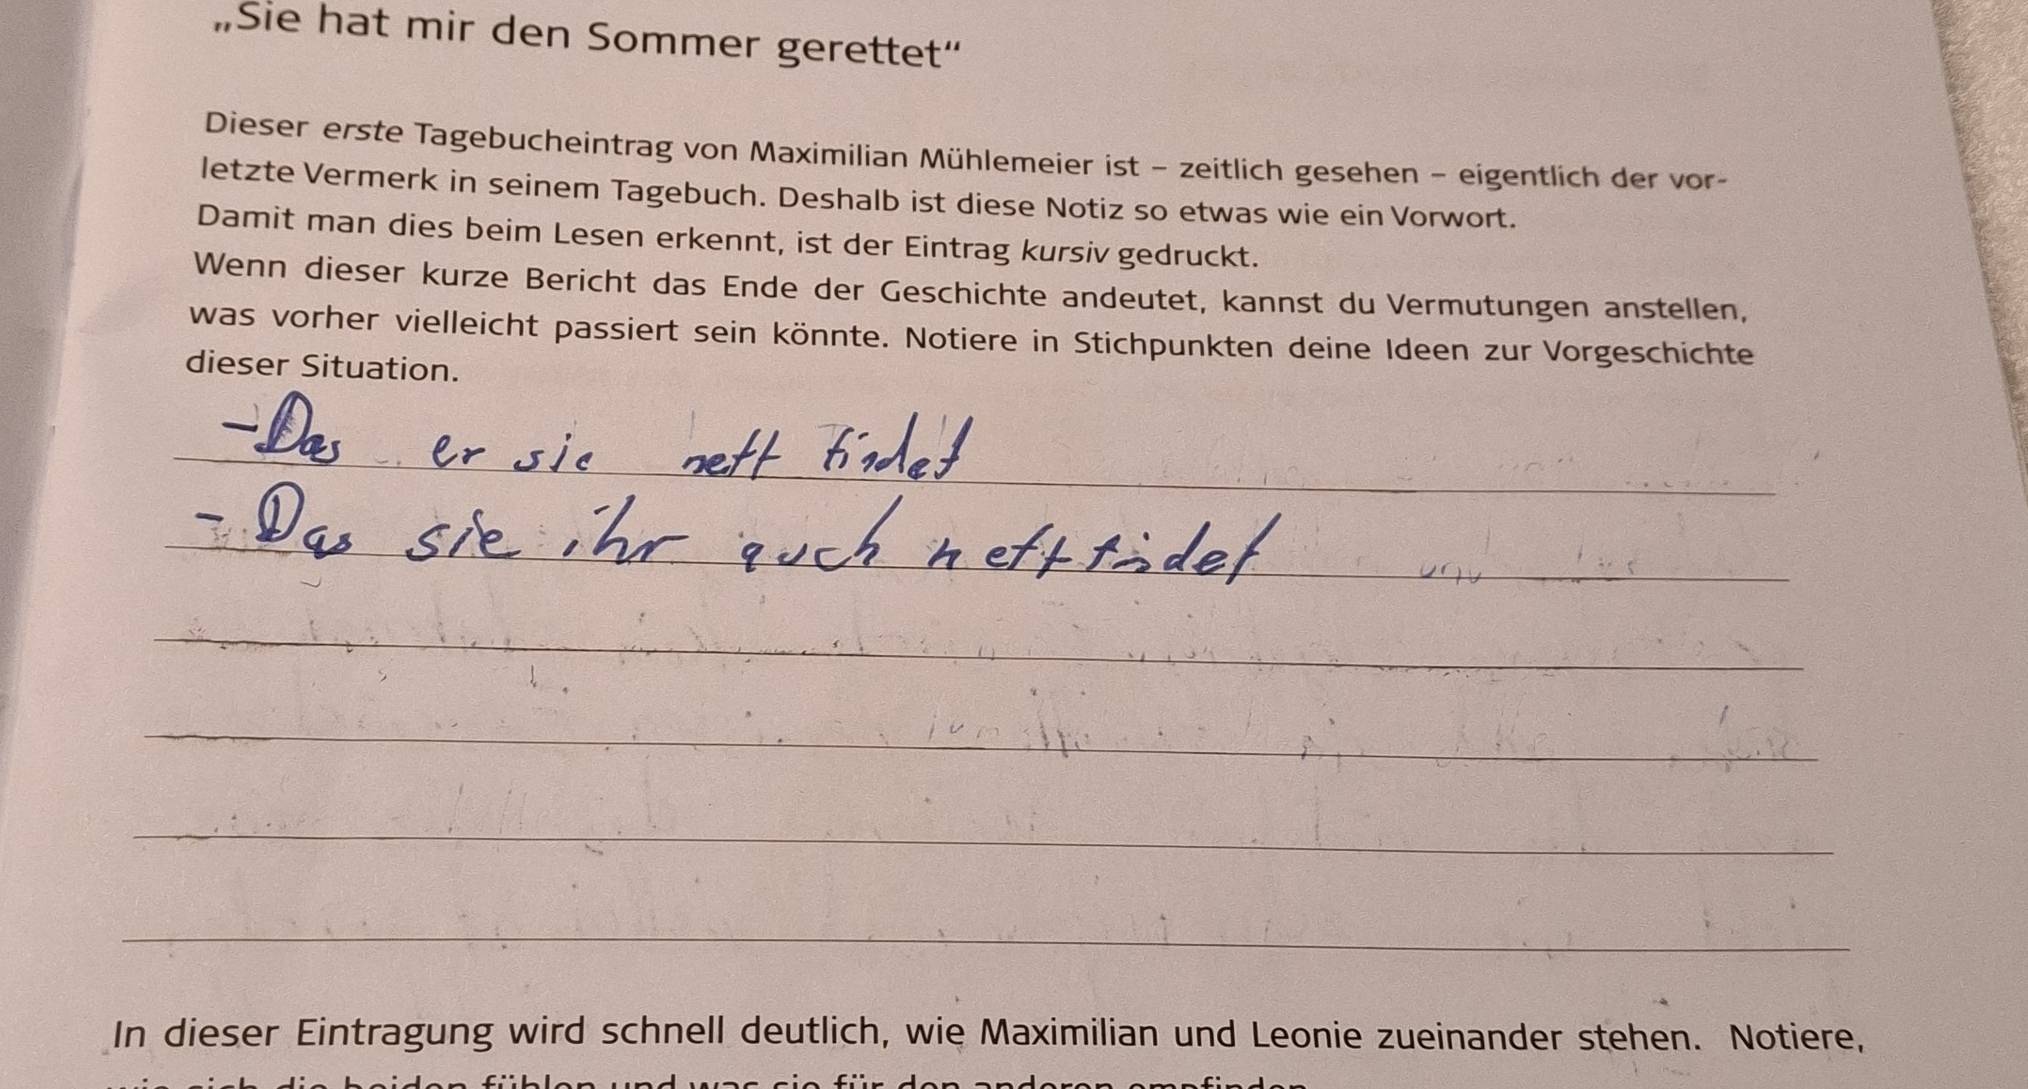 „Sie hat mir den Sommer gerettet“
Dieser erste Tagebucheintrag von Maximilian Mühlemeier ist – zeitlich gesehen – eigentlich der vor-
letzte Vermerk in seinem Tagebuch. Deshalb ist diese Notiz so etwas wie ein Vorwort.
Damit man dies beim Lesen erkennt, ist der Eintrag kursiv gedruckt.
Wenn dieser kurze Bericht das Ende der Geschichte andeutet, kannst du Vermutungen anstellen,
was vorher vielleicht passiert sein könnte. Notiere in Stichpunkten deine Ideen zur Vorgeschichte
dieser Situation.
- Das er sie nett findet
- Das sie ihr auch nett findet
In dieser Eintragung wird schnell deutlich, wie Maximilian und Leonie zueinander stehen. Notiere,
wie sich die beiden fühlen und was sie für den anderen empfinden